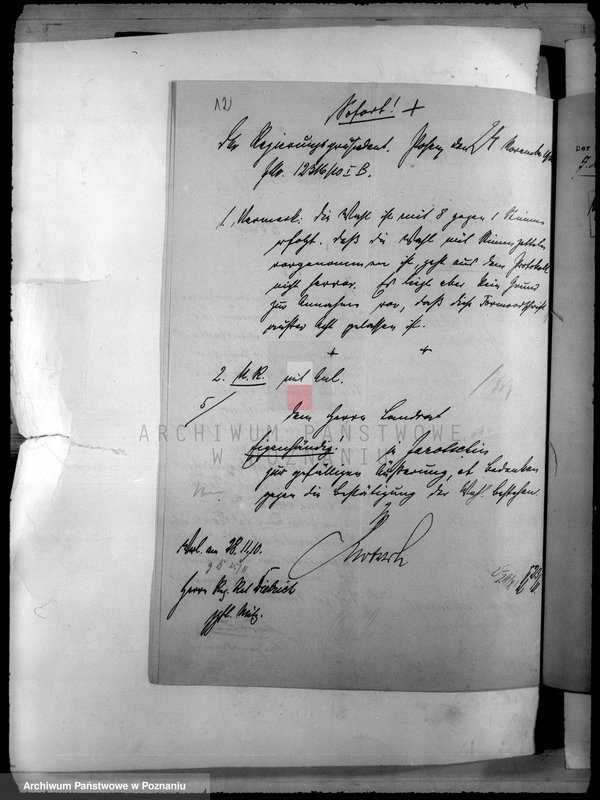 12
Sofort! +
Der Regierungspräsident. Posen den 24 November
J.No. 12346/10 I B.
1, Vermerk: die Wahl ist mit 8 gegen 1 Stimme
erfolgt. daß die Wahl mit Stimmzetteln
vorgenommen ist, geht aus dem Protokoll
nicht hervor. Es liegt aber kein Grund
zur Annahme vor, daß diese Formvorschrift
außer Acht gelassen ist.
+ +
2. U. R. mit Anl.
5/
dem Herrn Landrat
Eigenhändig. in Jarotschin
zur gefälligen Äußerung, ob Bedenken
gegen die Bestätigung der Wahl bestehen.
am 28.11.10.
Herrn Reg. Rat Dietrich
ARCHIWUM PAŃSTWOWE
W POZNANIU
Der
Archiwum Państwowe w Poznaniu